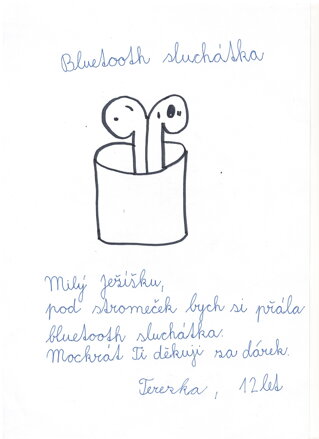 Bluetooth sluchátka
Milý Ježíšku,
pod stromeček bych si přála
bluetooth sluchátka.
Mockrát Ti děkuji za dárek.
Terezka, 12 let